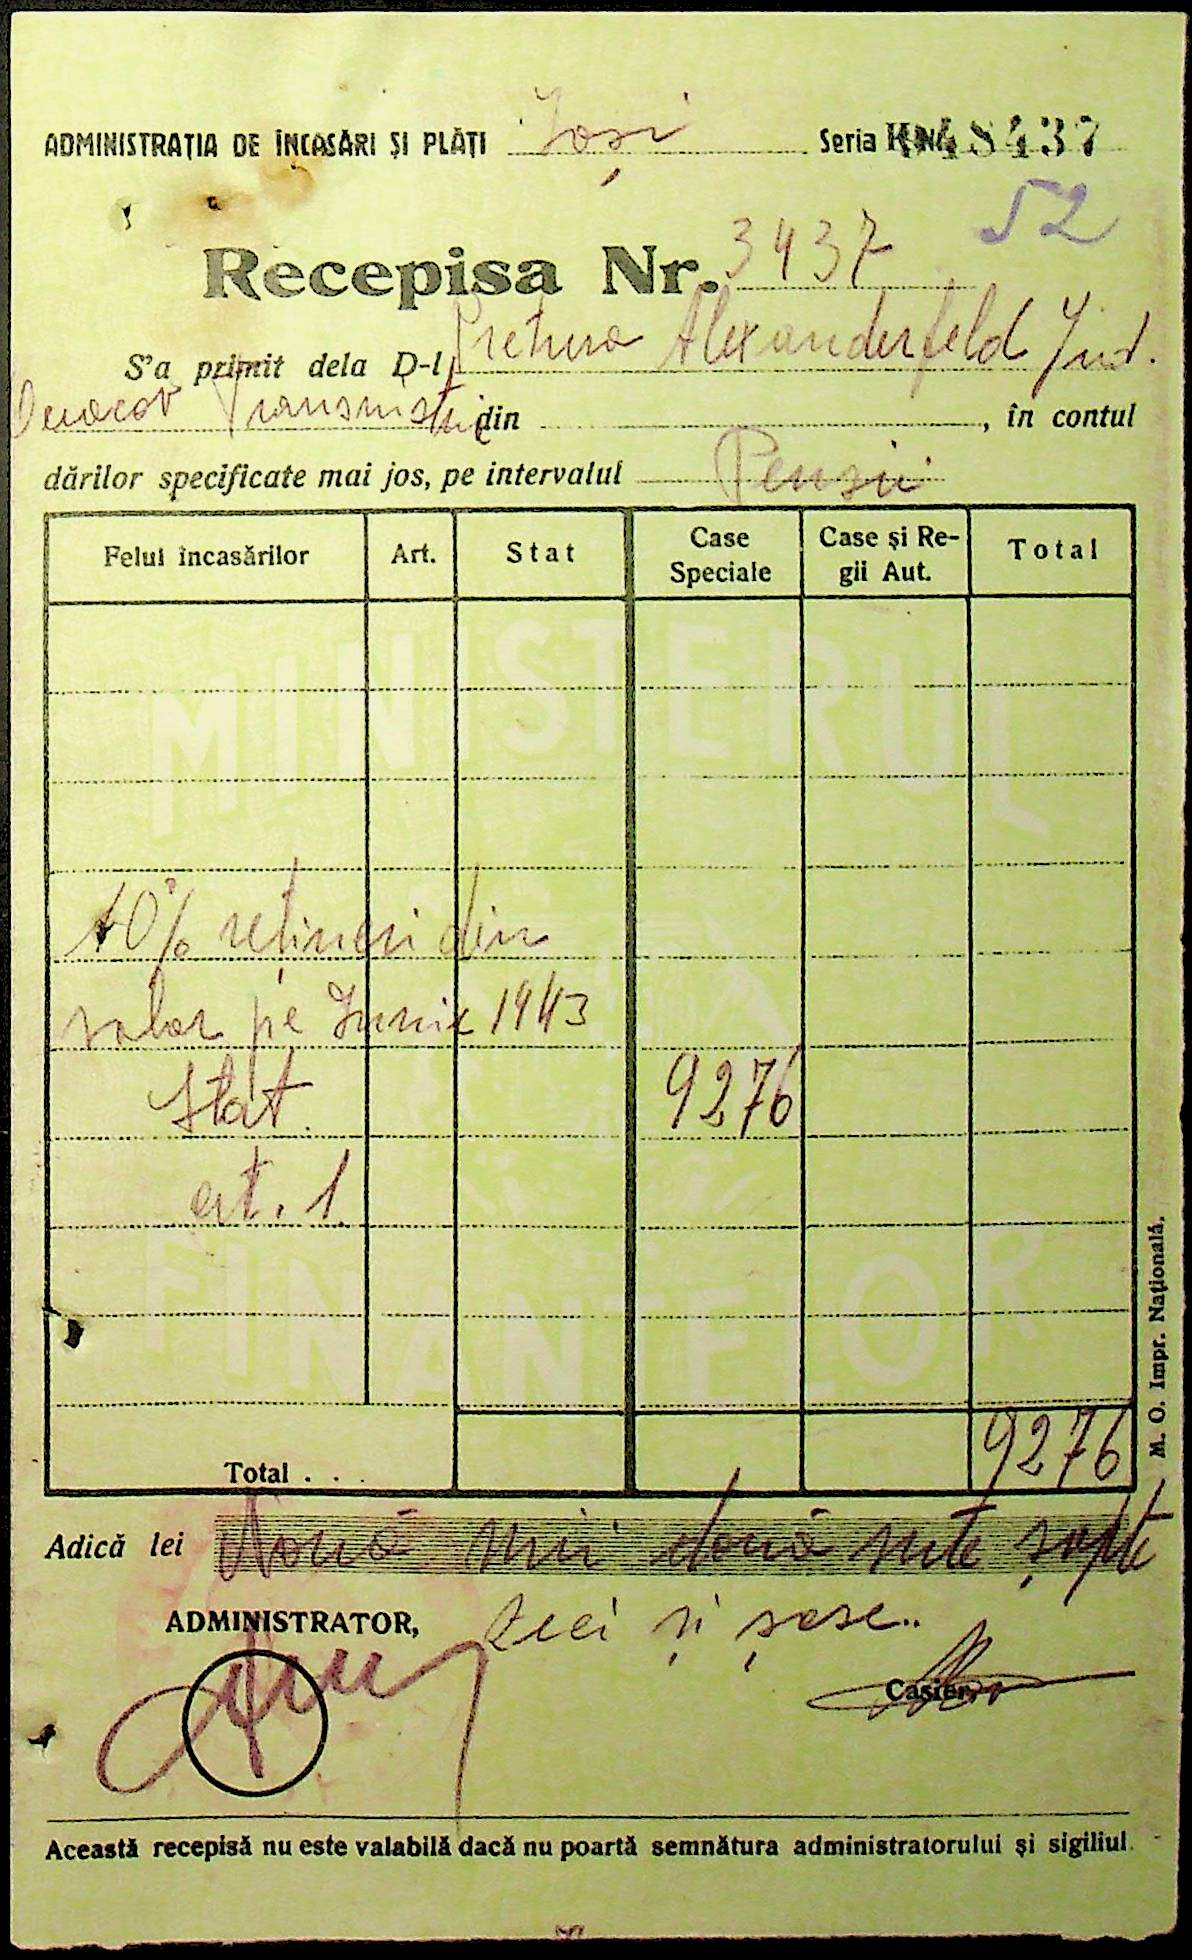 ADMINISTRAȚIA DE ÎNCASĂRI ȘI PLĂȚI Iași Seria 48437
52
Recepisa Nr. 3437
S'a primit dela D-l Pretura Alexanderfeld Jud.
Oceacov Transnistria din , în contul
dărilor specificate mai jos, pe intervalul Pensii
Felul încasărilor Art. Stat Case Speciale Case și Regii Aut. Total
MINISTERUL
10% rețineri din
salar pe Iunie 1943
Stat 9276
art. 1
FINANTELOR
Total . . . 9276
Adică lei Nouă mii două sute șapte
zeci și șase..
ADMINISTRATOR,
Casier,
Această recepisă nu este valabilă dacă nu poartă semnătura administratorului și sigiliul.
M. O. Impr. Națională.